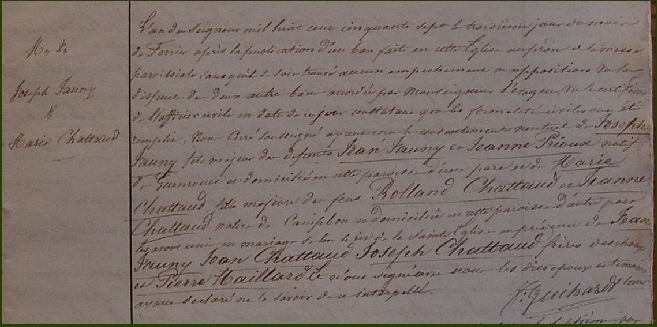 M. de
Joseph Jauny
&
Marie Chattaud
L'an du Seigneur mil huit cent cinquante sept le troisième jour du mois
de Février après la publication d'un ban fait en cette Eglise au prône de la messe
paroissiale, sans qu'il se soit trouvé aucun empêchement ou opposition vu la
dispense de deux autres bans accordée par Monseigneur l'évêque vu le certificat
de l'officier civile en date de ce jour constatant que les formalités civiles ont été
remplies, Nous Curé soussigné ayant reçu le consentement mutuel de Joseph
Jauny fils majeur des défunts Jean Jauny et Jeanne Prioux natif
de Guenrouet et domicilié en cette paroisse d'une part et de Marie
Chattaud fille majeure de feus Rolland Chattaud et Jeanne
Chattaud native de Campbon et domiciliée en cette paroisse d'autre part
les avons unis en mariage selon le rit de la Sainte Eglise en présence de Jean
Jauny Jean Chattaud Joseph Chattaud frères des époux
et Pierre Maillard qui ne signent non les dits époux et témoins
ayant déclaré ne le savoir de ce interpellé
J. Guihard